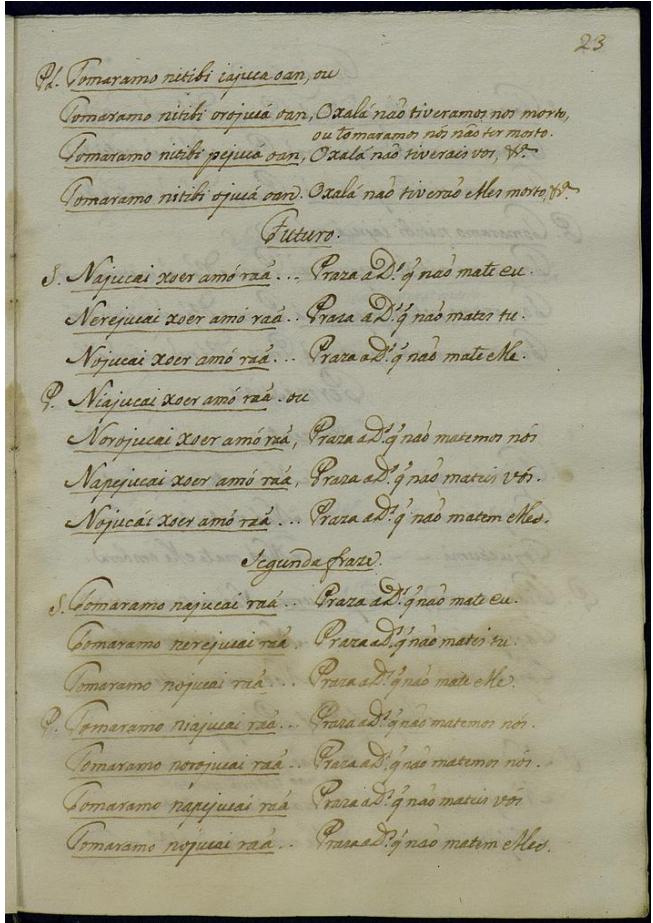 23
Pl. Tomaramo nitibi iajuca oan, ou
Tomaramo nitibi orojucá oan, Oxalá naõ tiveramos nos morto,
ou tomaramos nós naõ ter morto.
Tomaramo nitibi pejucá oan, Oxalá naõ tiverais vós, &ª.
Tomaramo nitibi ojucá oan. Oxalá naõ tiveraõ elles morto, &ª.
Futuro.
S. Najucai xoer amó raá ... Praza a Dˢ q̃ naõ mate eu.
Nerejucai xoer amó raá .. Praza a Dˢ q̃ naõ mates tu.
Nojucai xoer amó raá ... Praza a Dˢ q̃ naõ mate elle.
P. Niajucai xoer amó raá . ou
Norojucai xoer amó raá, Praza a Dˢ q̃ naõ matemos nós
Napejucai xoer amó raá, Praza a Dˢ q̃ naõ mateis vós.
Nojucái xoer amó raá ... Praza a Dˢ q̃ naõ matem elles.
Segunda fraze.
S. Tomaramo najucai raá .. Praza a Dˢ q̃ naõ mate eu.
Tomaramo nerejucai raá Praza a Dˢ q̃ naõ mates tu.
Tomaramo nojucai raá ... Praza a Dˢ q̃ naõ mate elle.
P. Tomaramo niajucai raá ... Praza a Dˢ q̃ naõ matemos nós.
Tomaramo norojucai raá .. Praza a Dˢ q̃ naõ matemos nós.
Tomaramo napejucai raá Praza a Dˢ q̃ naõ mateis vós
Tomaramo nojucai raá .. Praza a Dˢ q̃ naõ matem elles.